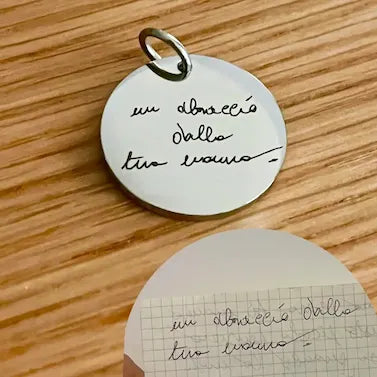 un abraccio
dalla
tua mamma
un abraccio dalla
tua mamma